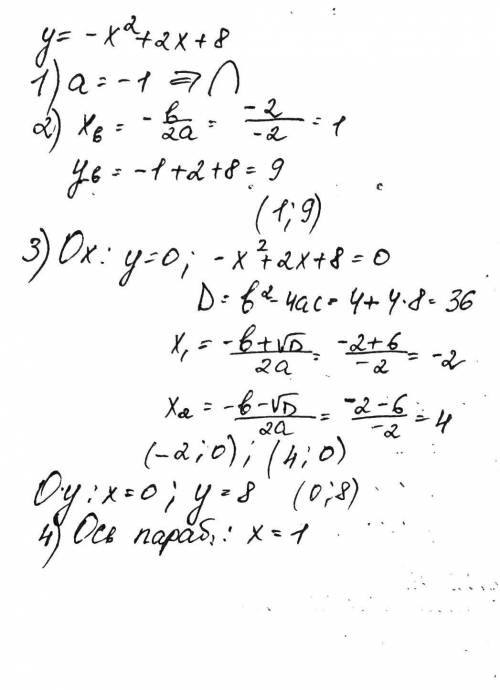 y = -x² + 2x + 8
1) a = -1 ⇒ ∩
2) xв = -в/2a = -2/-2 = 1
yв = -1 + 2 + 8 = 9
(1; 9)
3) Ox: y = 0; -x² + 2x + 8 = 0
D = в² - 4ac = 4 + 4·8 = 36
x₁ = -в+√D/2a = -2+6/-2 = -2
x₂ = -в-√D/2a = -2-6/-2 = 4
(-2; 0); (4; 0)
Oy: x = 0; y = 8 (0; 8)
4) Ось параб.: x = 1